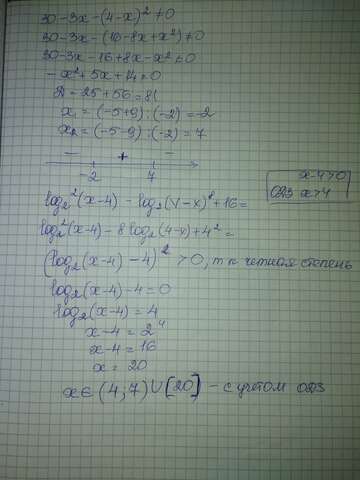 30-3x-(4-x)² ≠0
30-3x-(16-8x+x²) ≠0
30-3x-16+8x-x² ≠0
-x²+5x+14 ≠0
D=25+56=81
x₁=(-5+9):(-2)=-2
x₂=(-5-9):(-2)=7
- + -
-2 7
x-4>0
ОДЗ x>4
log₂²(x-4) - log₂(4-x)⁸+16=
log₂²(x-4)-8log₂(4-x)+4²=
(log₂(x-4)-4)² >0, т к четная степень
log₂(x-4)-4=0
log₂(x-4)=4
x-4=2⁴
x-4=16
x=20
x∈(4,7)∪[20] - с учетом ОДЗ